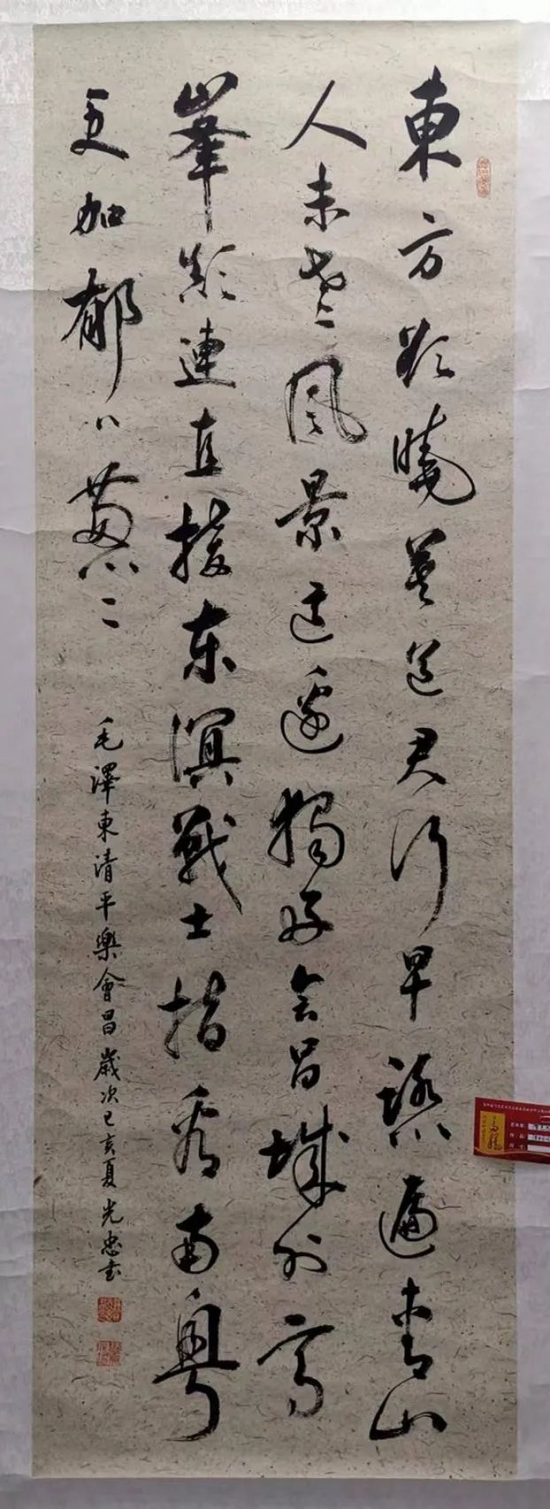 東方欲曉莫道君行早踏遍青山
人未老風景这邊獨好会昌城外高
峯颠連直接东溟戰士指看南粤
更加郁〻葱〻
毛澤東清平樂會昌歲次己亥夏光忠书